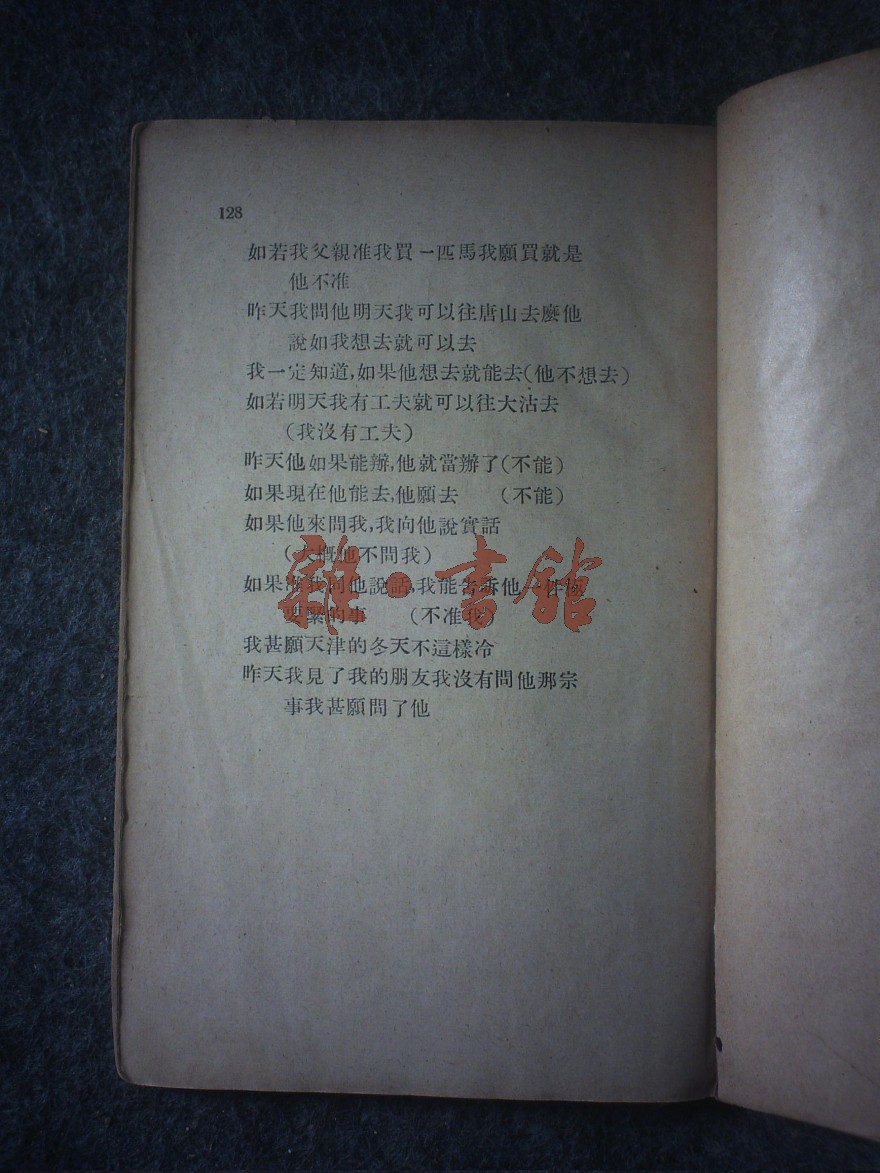 128
如若我父親准我買一匹馬我願買就是
他不准
昨天我問他明天我可以往唐山去麼他
說如我想去就可以去
我一定知道,如果他想去就能去(他不想去)
如若明天我有工夫就可以往大沽去
(我沒有工夫)
昨天他如果能辦,他就當辦了(不能)
如果現在他能去,他願去 (不能)
如果他來問我,我向他說實話
(大概他不問我)
如果准我向他說話,我能告訴他一件極
要緊的事 (不准我)
我甚願天津的冬天不這樣冷
昨天我見了我的朋友我沒有問他那宗
事我甚願問了他
雜·書館